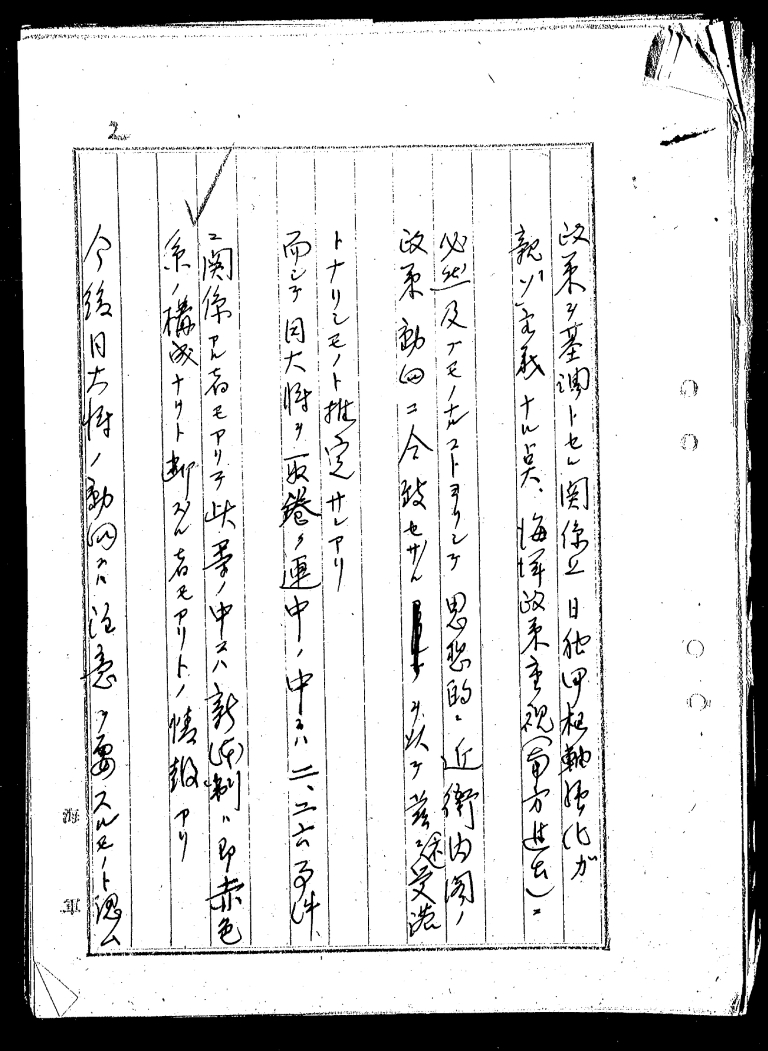 2
政策ヲ基調トセル関係上日独伊枢軸強化ガ
親ソ主義ナル点、海洋政策重視(南方進出)ニ
必然及ブモノナルコトヨリシテ思想的ニ近衛内閣ノ
政策動向ニ合致セザル ヲ以テ茲ニ
トナリシモノト推定サレアリ
而シテ同大将ヲ取巻ク連中ノ中ニハ二、二六事件
ニ関係アル者モアリテ此等ノ中ニハ新体制ハ即赤色
系ノ構成ナリト断ズル者モアリトノ情報アリ
今後同大将ノ動向ニハ注意ヲ要スルモノト認ム
海軍